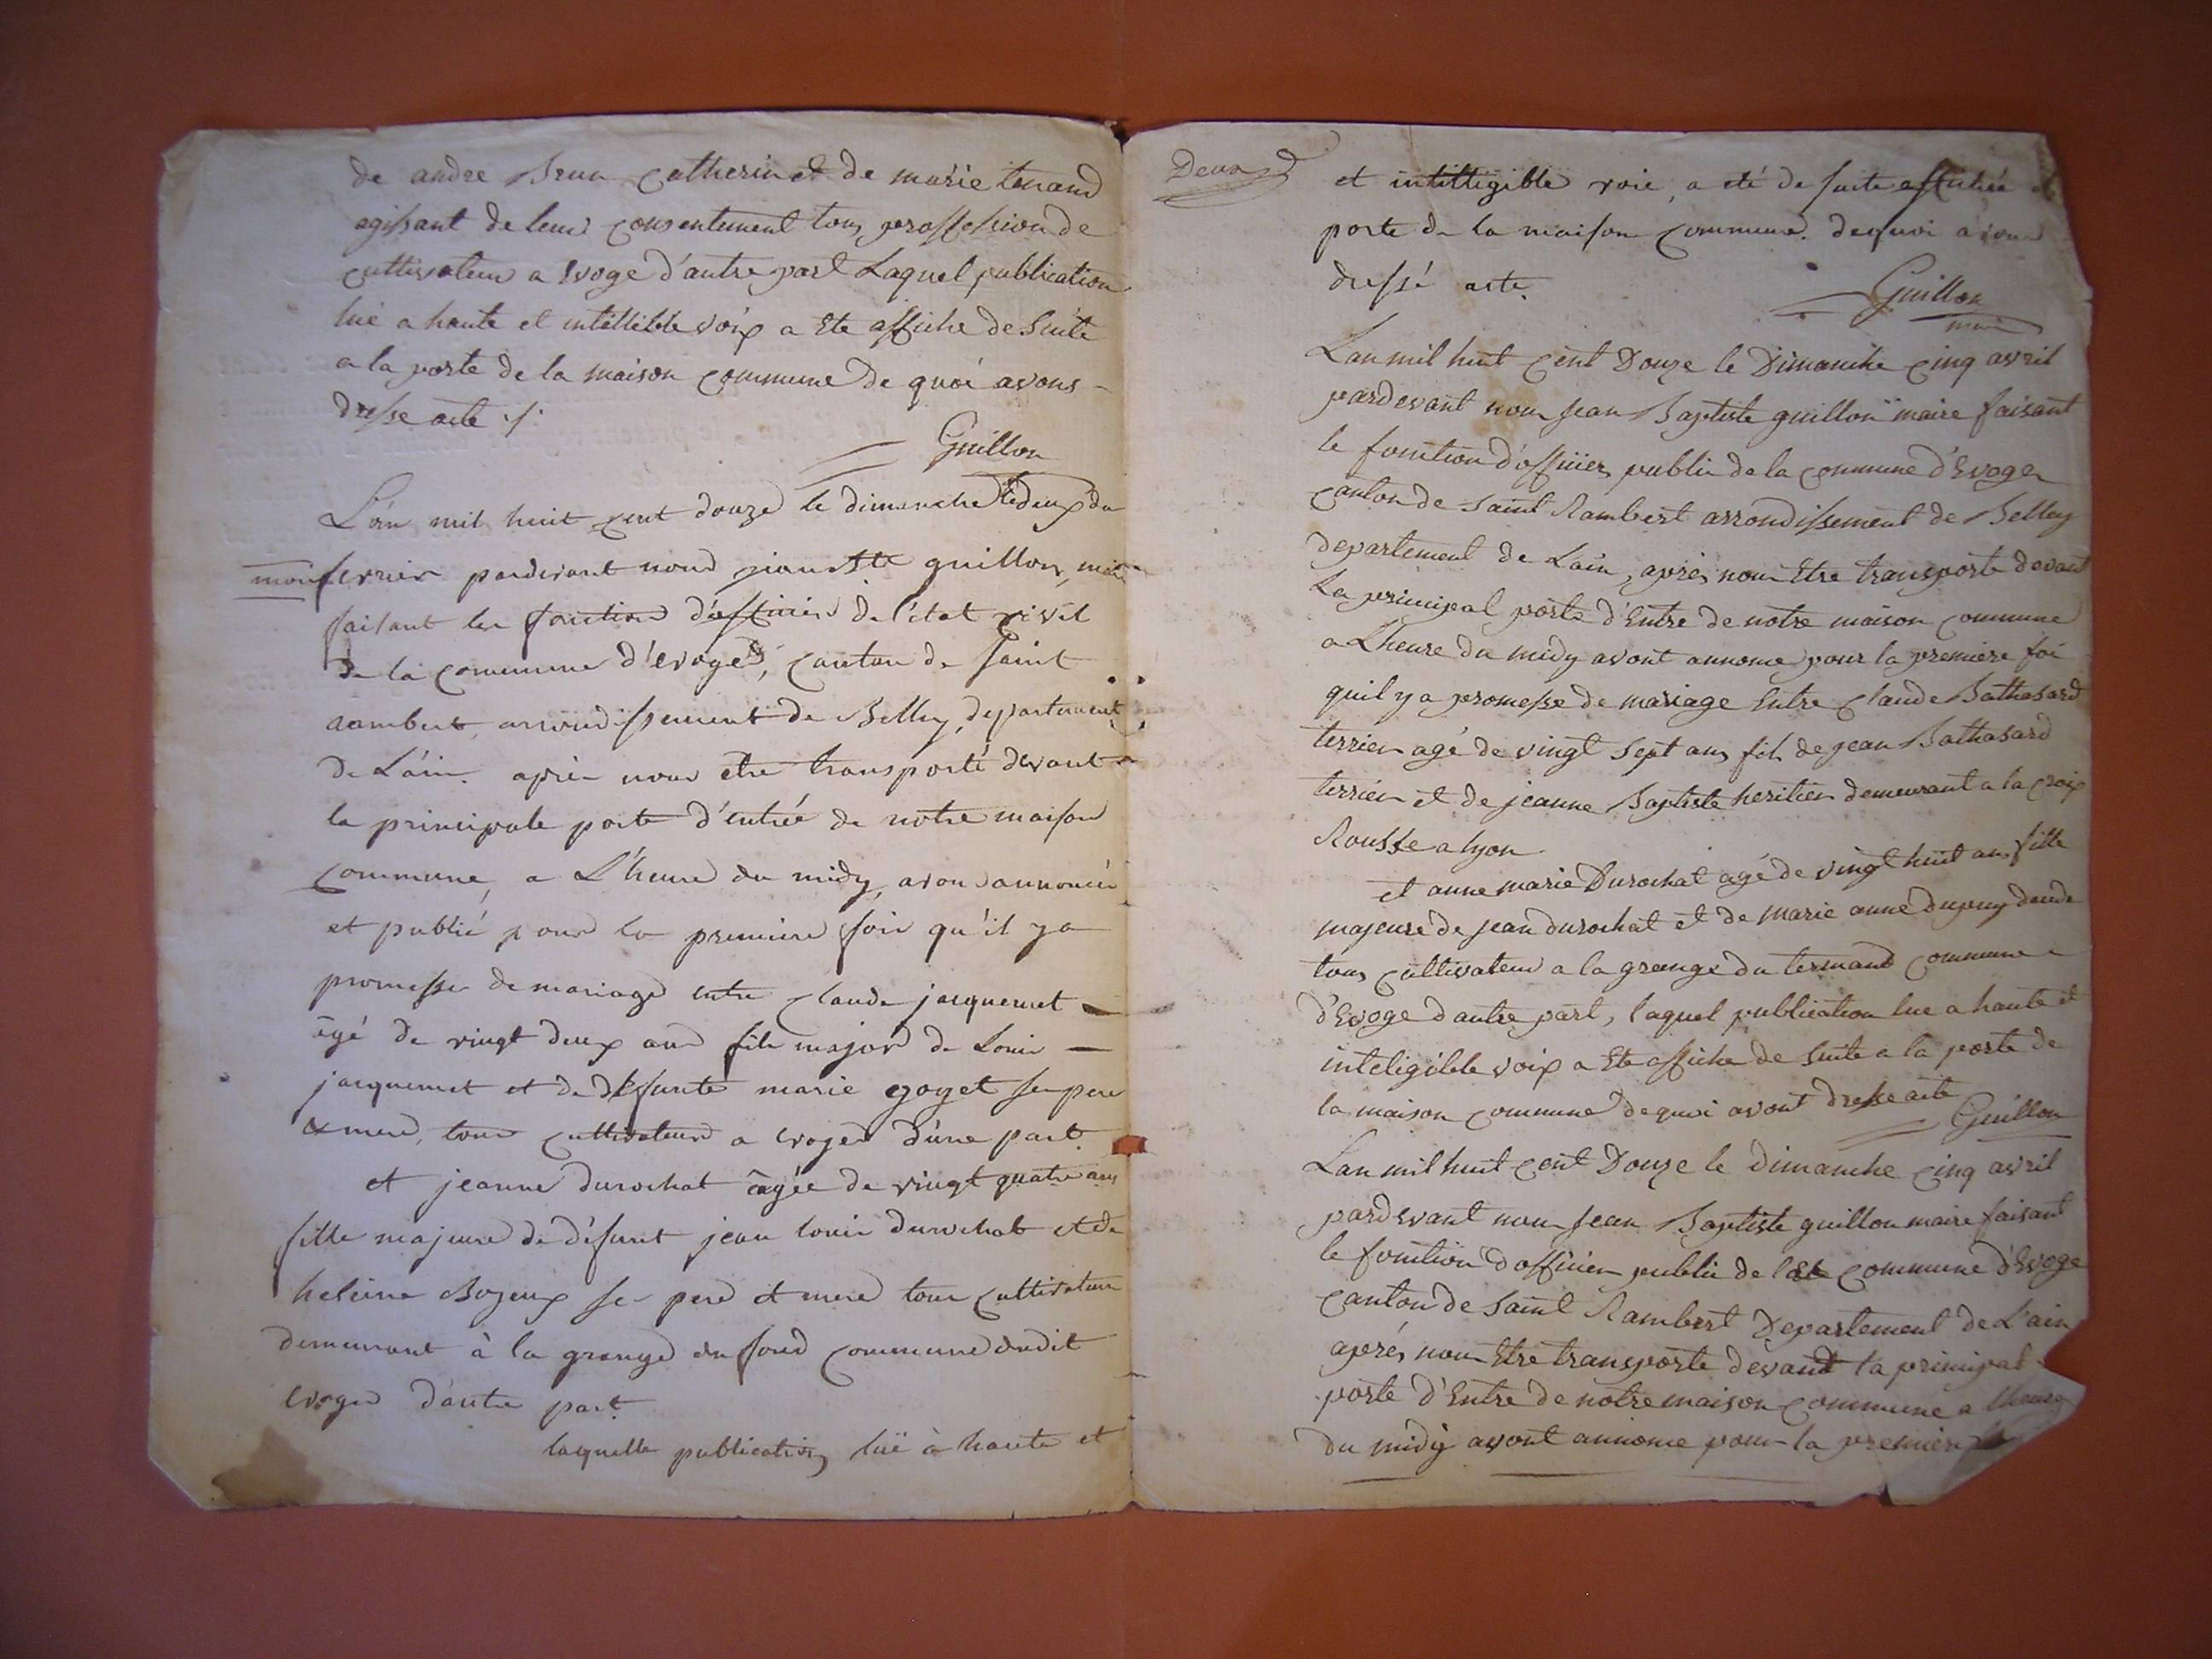 de andre Brun Catherin et de marie tenand
agissant de leur Consentement tous proffession de
cultivateur a Evoge d'autre part Laquel publication
lué a haute et intellible voix a Ete affiche de Suite
a la porte de la maison Commune de quoi avons
dresse acte ./.
Guillon
L'an mil huit cent douze le dimanche deux du
fevrier pardevant nous guillon, maire
faisant les fonction d'officier de l'état civil
de la Commune d'evoges, canton de saint
rambert, arrondissement de Belley, departement
de L'ain. après nous etre transporté devant
la principale porte d'entrée de notre maison
Commune, a L'heure du midy, avons annoncée
et publié pour la premiere fois qu'il y a
promesse de mariage entre claude jacquemet
âgé de vingt deux ans fils major de Louis
jacquemet et de défunte marie goyet se pere
& mere, tous cultivateurs a evoges d'une part
et jeanne durochat âgée de vingt quatre ans
fille majeure de défunt jean louis durochat et de
heleine Bozeux se pere et mere tous cultivateur
demeurant à la grange du fond commune dudit
evoges d'autre part.
laquelle publication luë à haute et
Deux
et intilligible voie, a eté de suite affichée
porte de la maison commune. dequoi avons
dressé acte.
Guillon
maire
Lan mil huit Cent Douze le Dimanche Cinq avril
pardevant nous Jean Baptiste guillon maire faisant
le fonction d'officier public de la Commune d'Evoges
Canton de Saint Rambert arrondissement de Belley
departement de Lain, après nous Etre transporte devant
La principal porte d'Entre de notre maison Commune
a Lheure du midy avont annonce pour la premiere foi
quil y a promesse de mariage Entre Claude Balthasard
terrier agé de vingt Sept ans fils de jean Balthasard
terrier et de jeanne Baptiste heritier demeurant a la Croix
Rousse a lyon
et anne marie Durochat agé de vingt huit ans fille
majeure de jean durochat et de marie anne dupuy
tous cultivateur a la grange du termand Commune
d'Evoge d'autre part, laquel publication lue a haute et
inteligible voix a Ete affiche de Suite a la porte de
la maison Commune de quoi avont dresse acte
Guillon
Lan mil huit Cent Douze le Dimanche Cinq avril
pardevant nous Jean Baptiste guillon maire faisant
le fonction d'officier public de la Commune d'Evoge
Canton de Saint Rambert Departement de L'ain
après nous Etre transporte devant la principal
porte d'Entre de notre maison Commune a lheure
du midy avont annonce pour la premiere